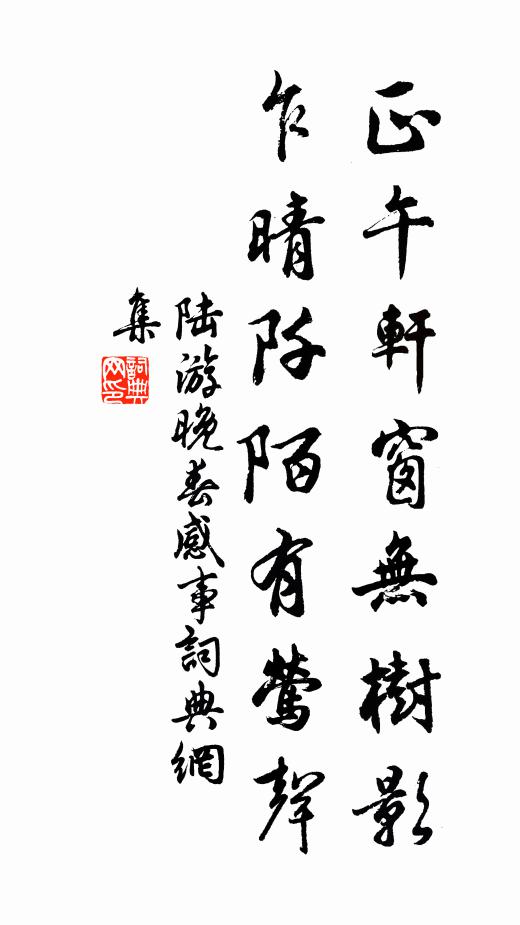 正午軒窗無樹影
乍晴阡陌有鶯聲
陸游晚春感事詞典網
集
詞典
网印